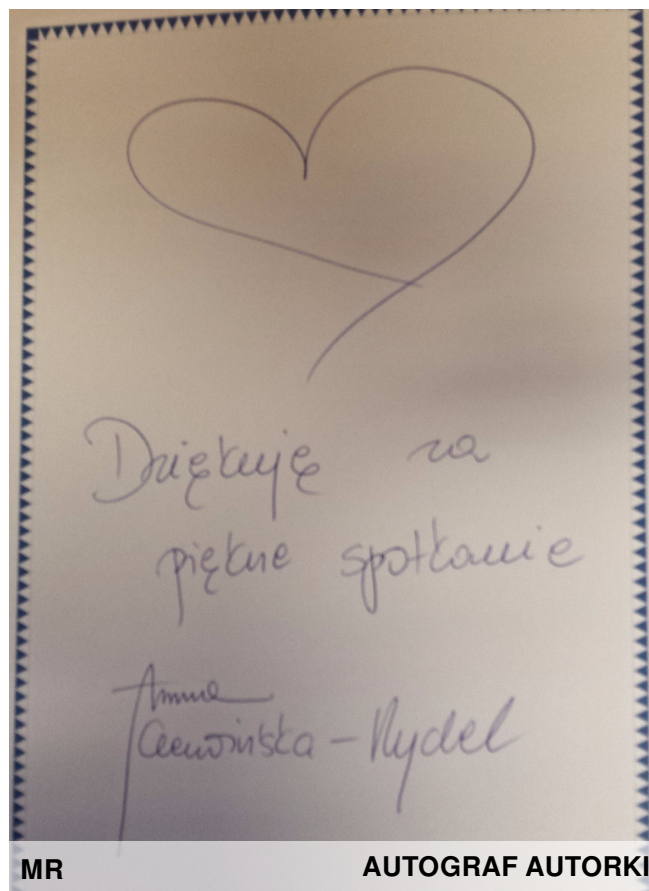 Dziękuję za
piękne spotkanie
Anna
Czerwińska-Rydel
MR
AUTOGRAF AUTORKI